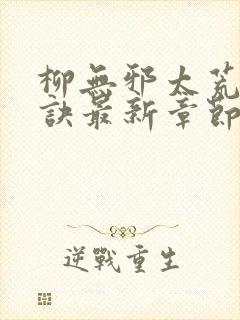 柳無邪太荒
訣最新章節
逆戰重生